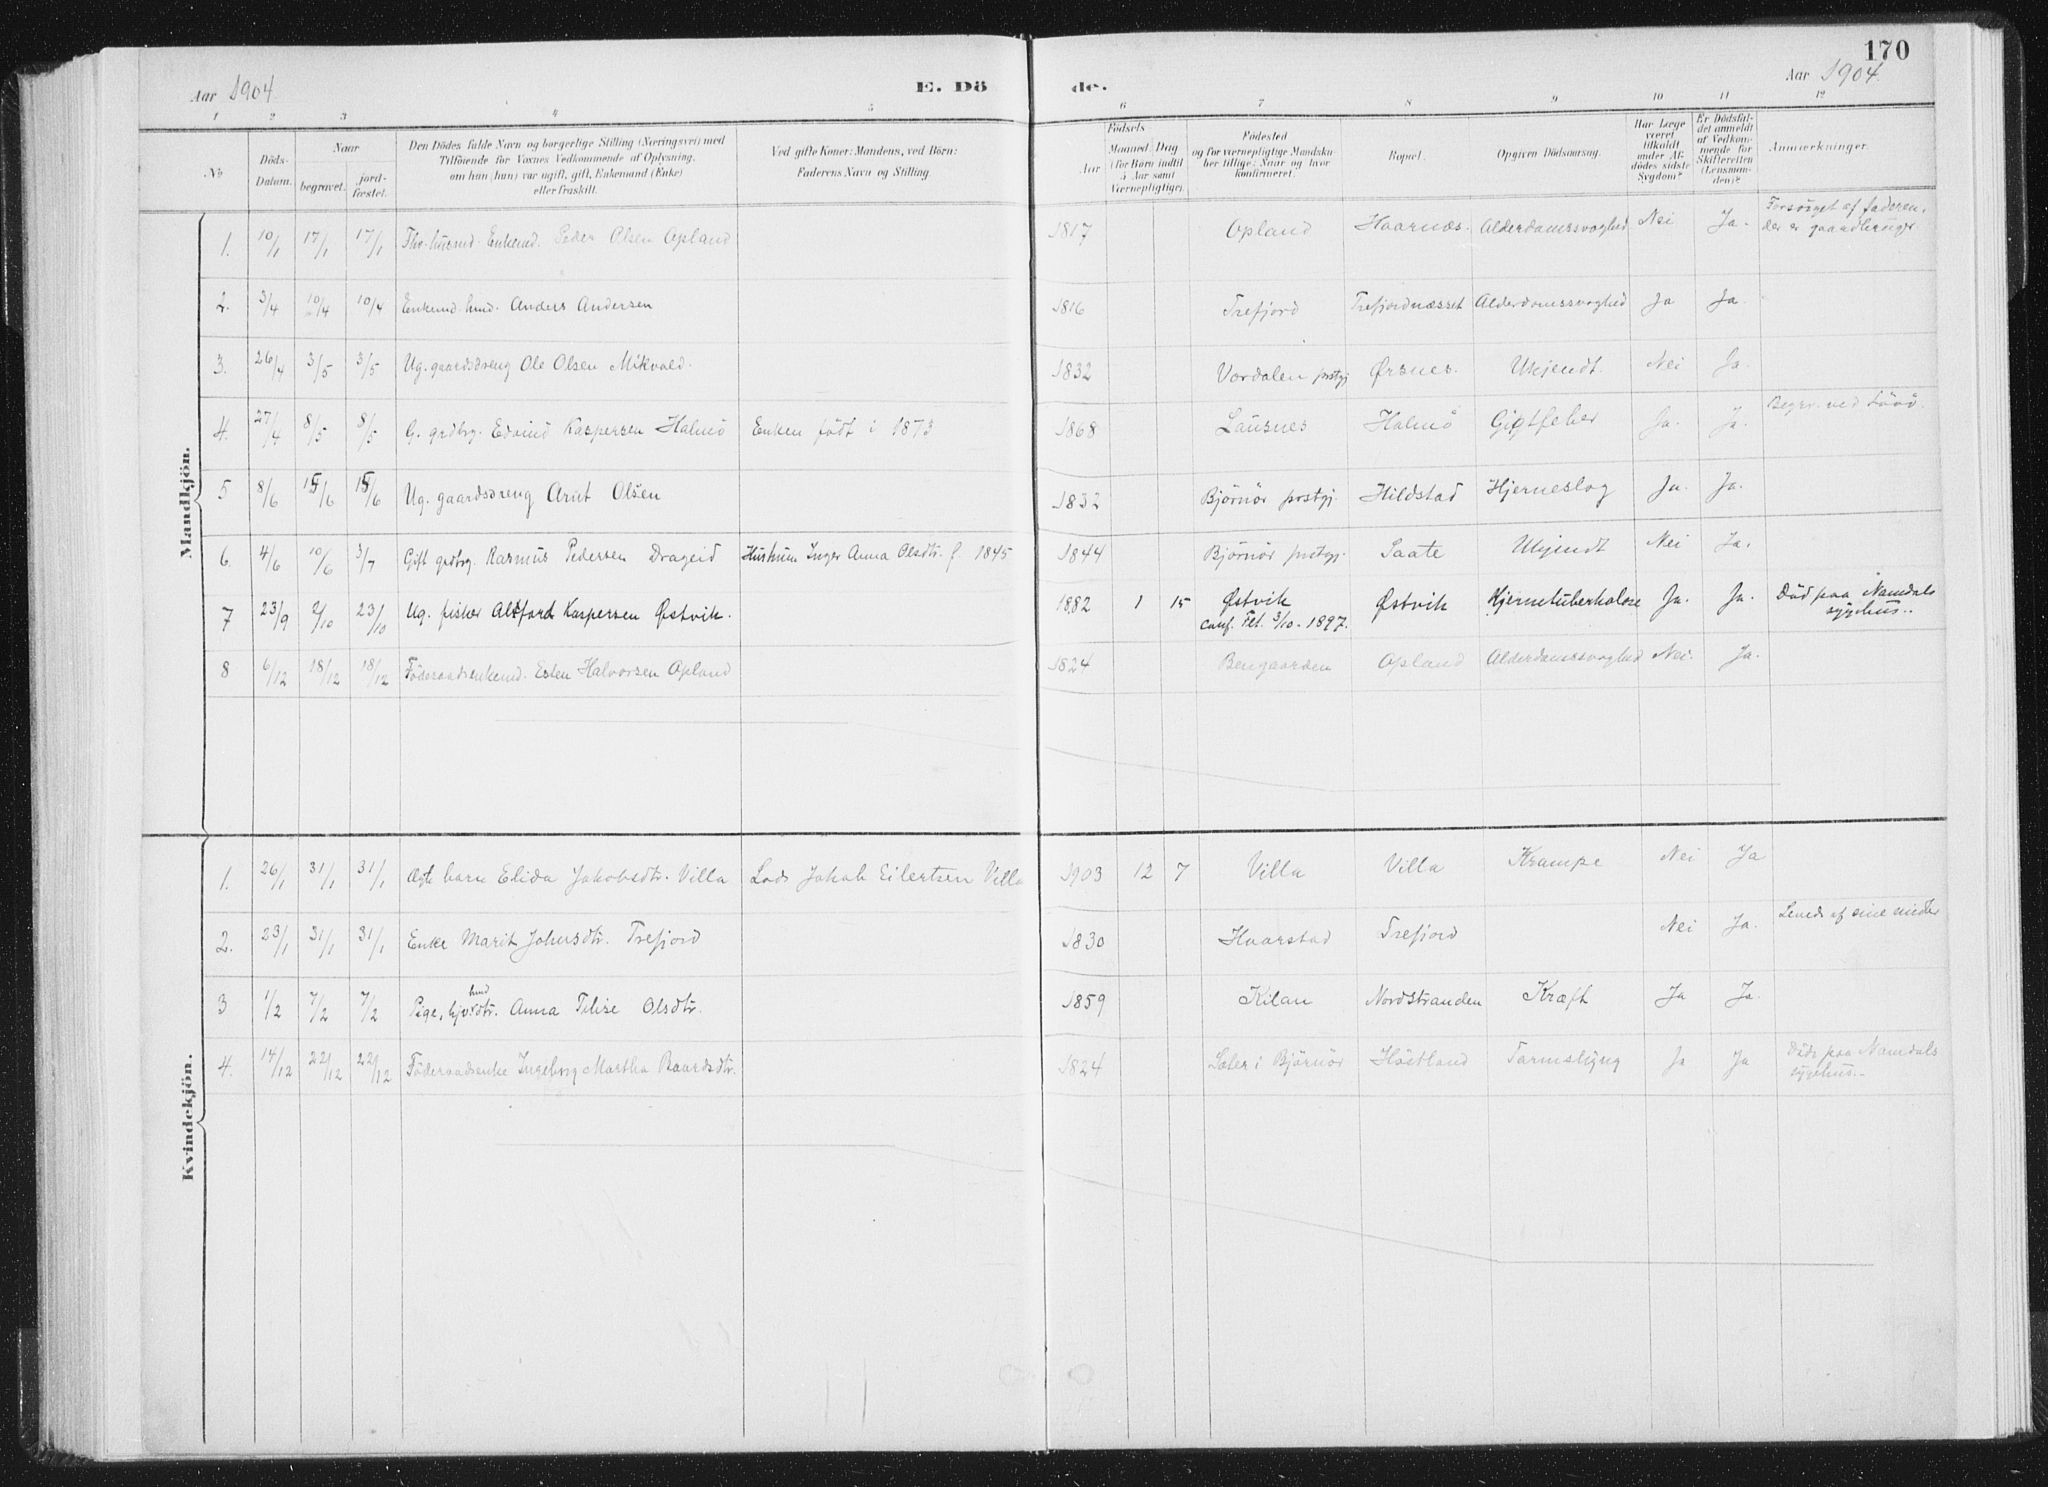 170
Aar 1904 E. Dö de. Aar 1904.
1 2 3 4 5 6 7 8 9 10 11 12
No
Döds-Datum.
Naar
begravet.
jord-fæstet.
Den Dödes fulde Navn og borgerlige Stilling (Næringsvei) med
Tilföiende for Voxnes Vedkommende af Oplysning,
om han (hun) var ugift, gift, Enkemand (Enke)
eller fraskilt.
Ved gifte Koner: Mandens, ved Börn:
Faderens Navn og Stilling.
Aar
Födsels
Maaned Dag
(for Börn indtil
5 Aar samt
Værnepligtige).
Födested
og for værnepligtige Mandsku
ber tillige: Naar og hvor
konfirmeret.
Bopæl.
Opgiven Dödsaarsag.
Har Læge
været
tilkaldt
under Af-
dödes sidste
Sygdom?
Er Dödsfal-
det anmeldt
af Vedkom-
mende for
Skifteretten
(Lensman-
den)?
Anmærkninger.
Mandkjön.
1. 10/1 17/1 17/1 Enkemd. Peder Olsen Opland 1817 Opland Haarnæs. Alderdomssvaghed Nei Ja. Forsörget af
der er
2. 3/4 10/4 10/4 Enkemd. Anders Andersen 1816 Trefjord Trefjordnæsset Alderdomssvaghed Ja Ja.
3. 26/4 3/5 3/5 Ug. gaardsdreng Ole Olsen Mikvold. 1832 Vordalen prstgj Ørsnes. Ukjendt. Nei Ja.
4. 27/4 8/5 8/5 G. grdbrg. Edvind Kaspersen Halmö Enken födt i 1873 1868 Lausnes Halmö Gigtfeber Ja. Ja. Begrv. ved
5 8/6 15/6 15/6 Ug. gaardsdreng Arnt Olsen 1832 Björnör prstgj. Hildstad Hjerneslag Ja. Ja.
6. 4/6 10/6 3/7 Gift grdbrg. Rasmus Pedersen Drageid Hustrum Inger Anna Olsdtr. f. 1845 1844 Björnör prstgj. Saate Ukjendt Nei Ja.
7 23/9 2/10 23/10 Ug. fisker Kaspersen Østvik. 1882 1 15 Østvik Østvik Hjernetuberkolose Ja. Ja. Död paa Namdals
conf. Flt. 3/10-1897. sygehus..
8 6/12 18/12 18/12 Föderaadsenkemd. Esten Halvorsen Opland 1824 Bengaarden Opland Alderdomssvaghed Nei. Ja.
Kvindekjön.
1. 26/1 31/1 31/1 Ægte barn Elida Jakobsdtr. Villa Lods Jakob Eilertsen Villa 1903 12 7 Villa Villa Krampe Nei Ja
2. 23/1 31/1 31/1 Enke Marit Johnsdtr. Trefjord 1830 Haarstad Trefjord Nei Ja. Leveds af sine midler
3 1/2 7/2 7/2 Pige, dtr. Anna Olsdtr. 1859 Kilan Nordstranden Kræft Ja Ja.
4. 14/12 22/12 22/12 Föderaadsenke Ingeborg Martha Baardsdtr. 1824 Sæter i Björnör Höstland Tarmslyng Ja Ja Döde paa Namdals
sygehus.-